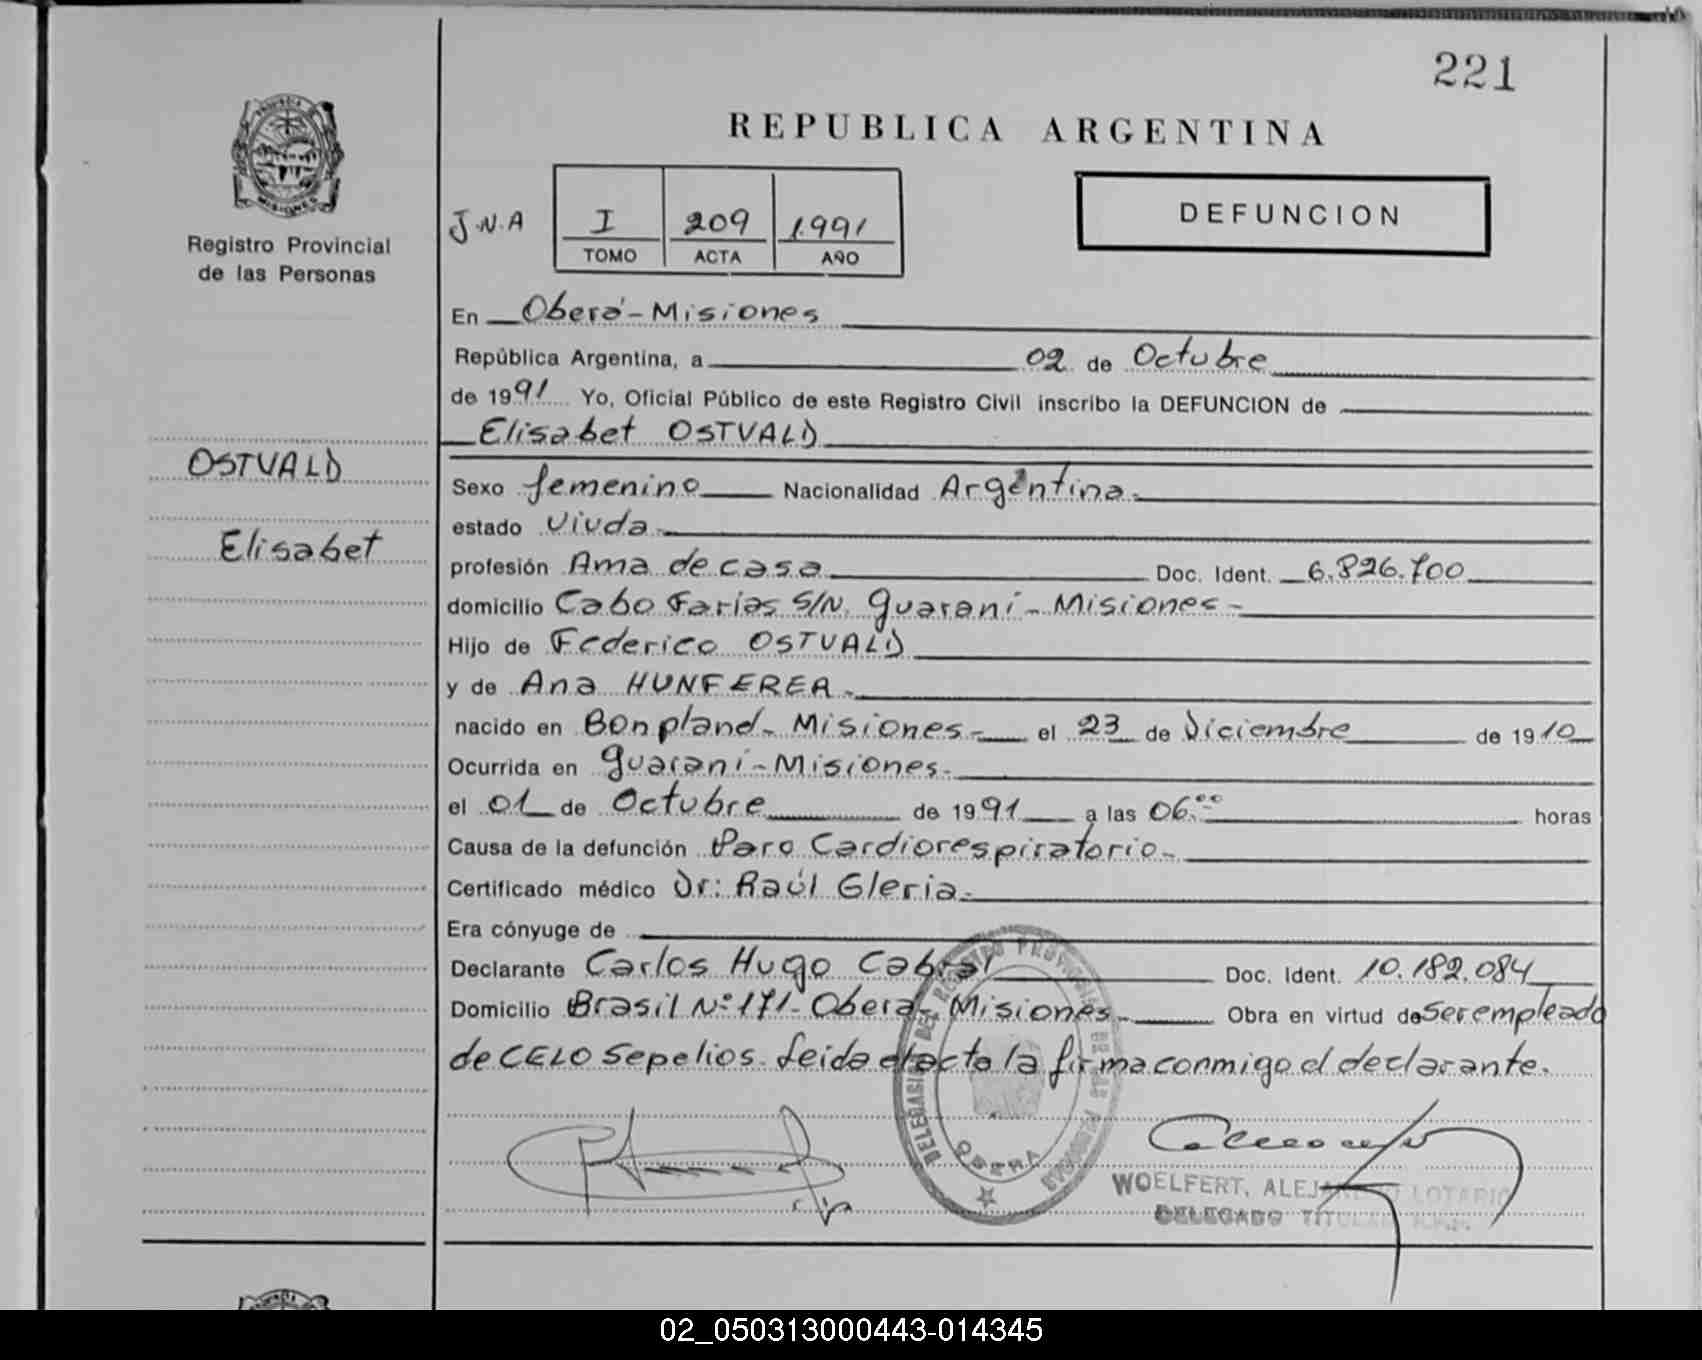 221
REPUBLICA ARGENTINA
PROVINCIA
MISIONES
Registro Provincial
de las Personas
J.N.A
I 209 1.991
TOMO ACTA AÑO
DEFUNCION
En Oberá-Misiones
República Argentina, a 02 de Octubre
de 1991 Yo, Oficial Público de este Registro Civil inscribo la DEFUNCION de
Elisabet OSTVALD
OSTVALD
Elisabet
Sexo femenino Nacionalidad Argentina.
estado Viuda.
profesión Ama de casa Doc. Ident. 6.826.700
domicilio Cabo Farias S/N. Guaraní-Misiones-
Hijo de Federico OSTVALD
y de Ana HUNFERER.
nacido en Bonpland-Misiones- el 23 de Diciembre de 1910
Ocurrida en Guaraní-Misiones.
el 01 de Octubre de 1991 a las 06.00 horas
Causa de la defunción Paro Cardiorespiratorio-
Certificado médico Dr: Raúl Gleria.
Era cónyuge de
Declarante Carlos Hugo Cabral Doc. Ident. 10.182.084
Domicilio Brasil Nº171-Oberá-Misiones- Obra en virtud de ser empleado
de CELO Sepelios. Leida el acta la firma conmigo el declarante.
DELEGASION DEL REGISTRO PROVINCIAL DE LAS PERSONAS
OBERA
WOELFERT, ALEJANDRO LOTARIO
DELEGADO TITULAR R.P.P.
02_050313000443-014345